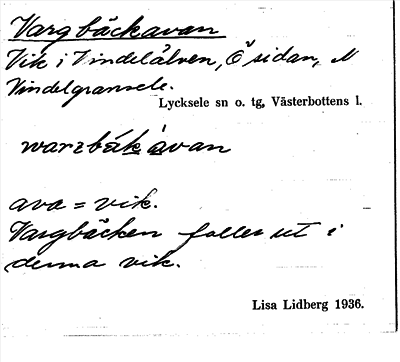 Vargbäckavan
Vik i Vindelälven, Ö sidan, N
Vindelgransele.
Lycksele sn o. tg, Västerbottens l.
warzbák ávan
ava = vik.
Vargbäcken faller ut i
denna vik.
Lisa Lidberg 1936.